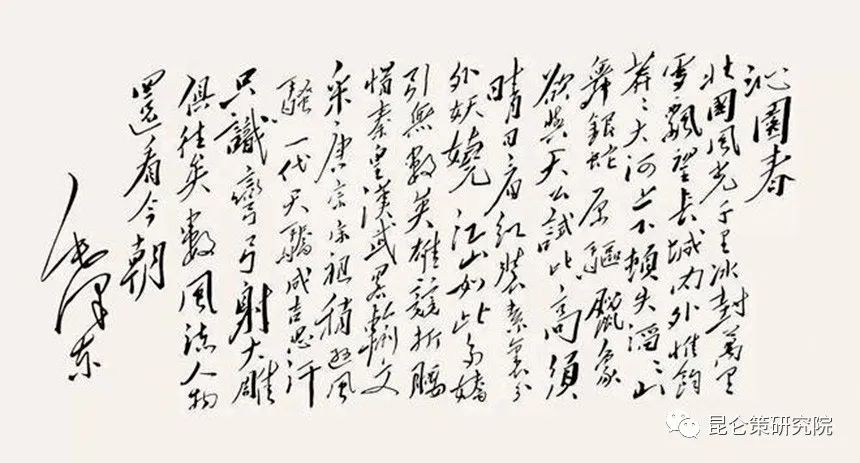 沁園春
北國風光千里冰封萬里
雪飄望長城內外惟餘
莽〻大河上下頓失滔〻山
舞銀蛇原驅臘象
欲與天公試比高須
晴日看紅裝素裹分
外妖嬈 江山如此多嬌
引無數英雄競折腰
惜秦皇漢武略輸文
采唐宗宋祖稍遜風
騷一代天驕成吉思汗
只識彎弓射大雕
俱往矣數風流人物
還看今朝
毛澤東
昆仑策研究院